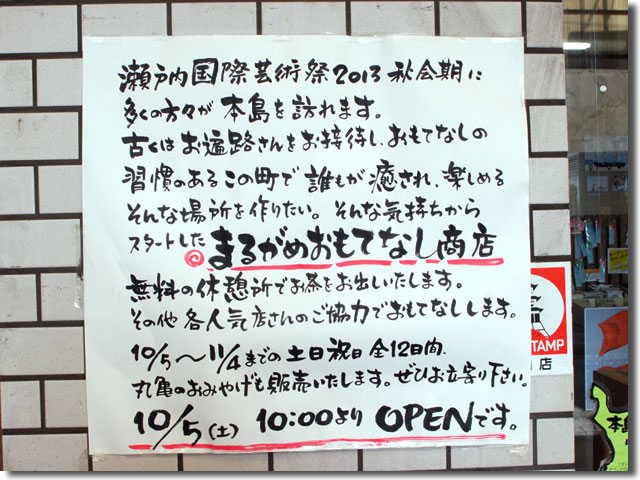 瀬戸内国際芸術祭2013秋会期に
多くの方々が本島を訪れます。
古くはお遍路さんをお接待し、おもてなしの
習慣のあるこの町で誰もが癒され、楽しめる
そんな場所を作りたい。そんな気持ちから
スタートした まるがめおもてなし商店
無料の休憩所でお茶をお出しいたします。
その他各人気店さんのご協力でおもてなしします。
10/5〜11/4までの土日祝日全12日間、
丸亀のおみやげも販売いたします。ぜひお立寄り下さい。
10/5(土) 10:00より OPENです。
STAMP
店
本島